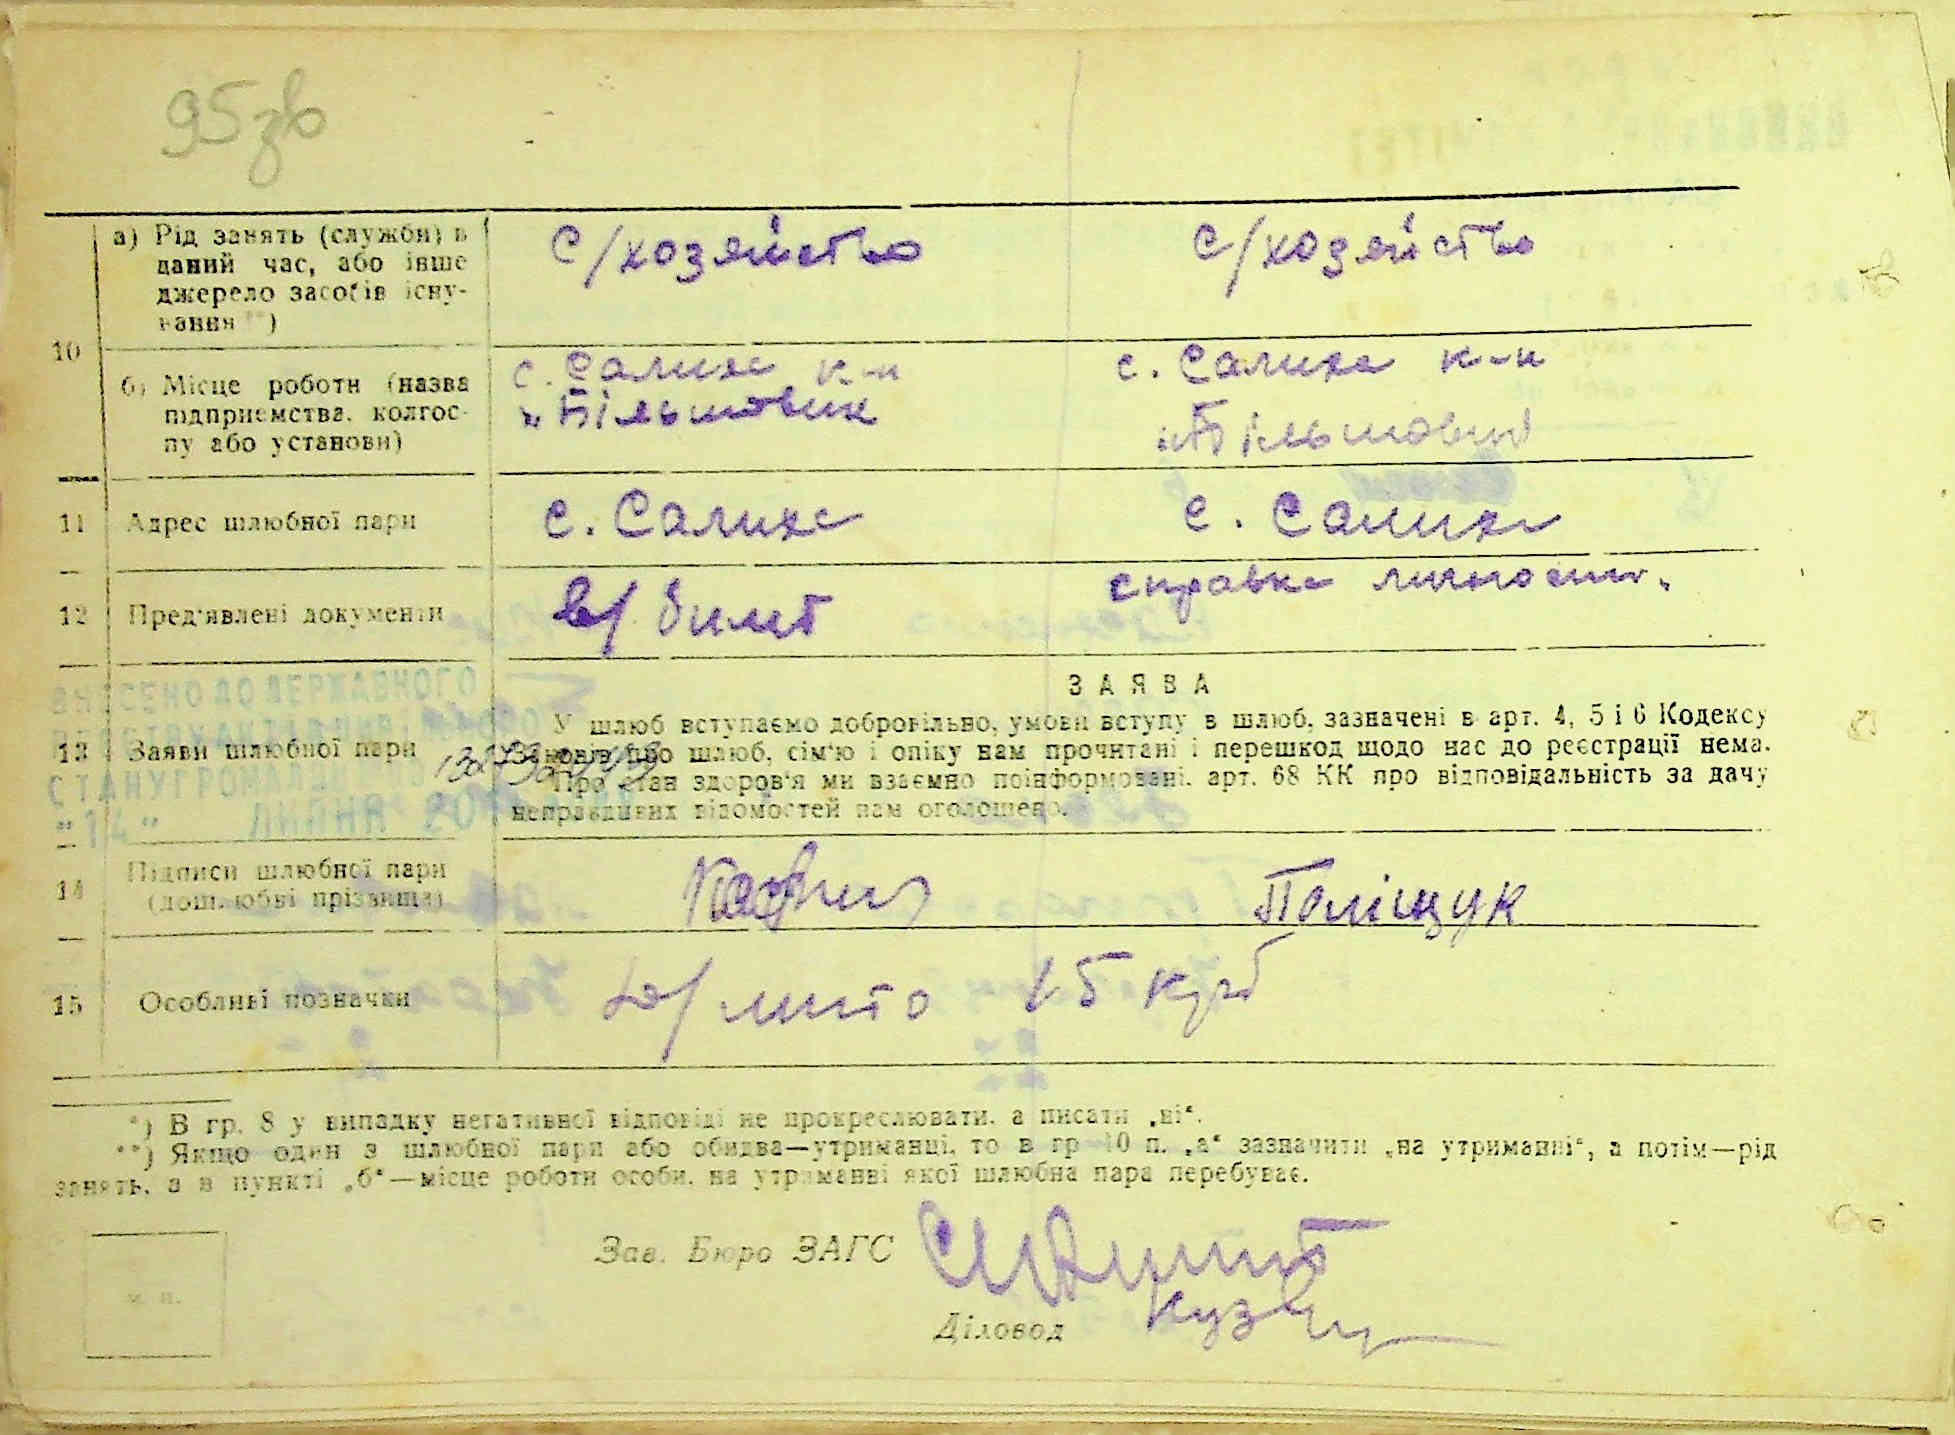 95зв
а) Рід занять (служби) в
даний час, або інше
джерело засобів існу-
вання **)
С/хозяйство
С/хозяйство
10
б) Місце роботи (назва
підприємства, колгос-
пу або установи)
с. Салиха к-п
„Більшовик
с. Салиха к-п
„Більшовик
11
Адрес шлюбної пари
с. Салиха
с. Салиха
12
Пред'явлені документи
в/билет
справка личности.
13
Заяви шлюбної пари
ВНЕСЕНО ДО ДЕРЖАВНОГО
СТАНУ ГРОМАДЯН
"14" ЛИПНЯ
ЗАЯВА
У шлюб вступаємо добровільно, умови вступу в шлюб, зазначені в арт. 4, 5 і 6 Кодексу
Законів про шлюб, сім'ю і опіку нам прочитані і перешкод щодо нас до реєстрації нема.
Про стан здоров'я ми взаємно поінформовані, арт. 68 КК про відповідальність за дачу
неправдивих відомостей нам оголошено.
14
Підписи шлюбної пари
(дошлюбні прізвища)
Поліщук
15
Особливі позначки
мито 15 крб
*) В гр. 8 у випадку негативної відповіді не прокреслювати, а писати „ні“.
**) Якщо один з шлюбної пари або обидва—утриманці, то в гр 10 п. „а“ зазначити „на утриманні“, а потім—рід
занять, а в пункті „б“—місце роботи особи, на утриманні якої шлюбна пара перебуває.
Зав. Бюро ЗАГС
Діловод
м. п.